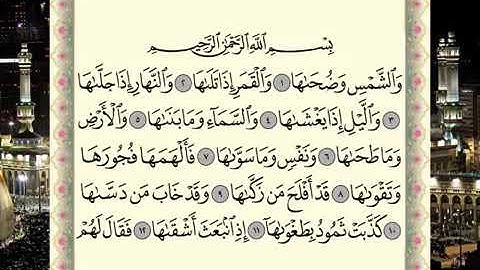 بِسْمِ ٱللَّهِ ٱلرَّحْمَٰنِ ٱلرَّحِيمِ
وَٱلشَّمْسِ وَضُحَىٰهَا ١ وَٱلْقَمَرِ إِذَا تَلَىٰهَا ٢ وَٱلنَّهَارِ إِذَا جَلَّىٰهَا
٣ وَٱلَّيْلِ إِذَا يَغْشَىٰهَا ٤ وَٱلسَّمَآءِ وَمَا بَنَىٰهَا ٥ وَٱلْأَرْضِ
وَمَا طَحَىٰهَا ٦ وَنَفْسٍ وَمَا سَوَّىٰهَا ٧ فَأَلْهَمَهَا فُجُورَهَا
وَتَقْوَىٰهَا ٨ قَدْ أَفْلَحَ مَن زَكَّىٰهَا ٩ وَقَدْ خَابَ مَن دَسَّىٰهَا
١٠ كَذَّبَتْ ثَمُودُ بِطَغْوَىٰهَآ ١١ إِذِ ٱنۢبَعَثَ أَشْقَىٰهَا ١٢ فَقَالَ لَهُمْ